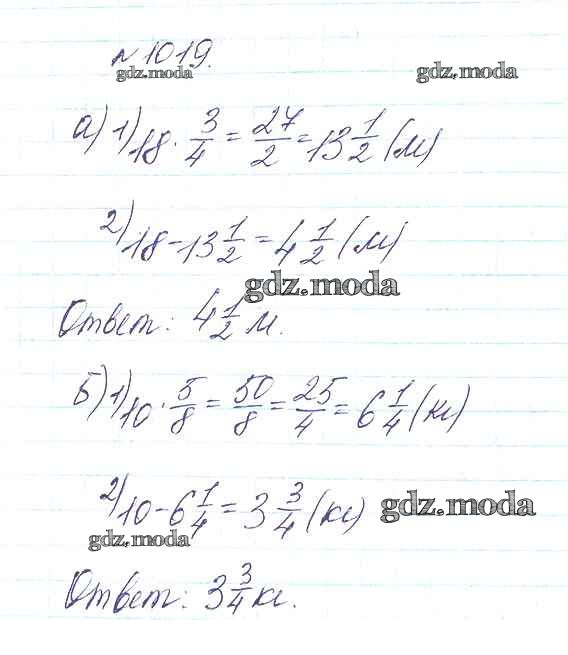 №1019.
gdz.moda
gdz.moda
а) 1) 18 · 3/4 = 27/2 = 13 1/2 (м)
2) 18 - 13 1/2 = 4 1/2 (м)
gdz.moda
Ответ: 4 1/2 м.
Б) 1) 10 · 5/8 = 50/8 = 25/4 = 6 1/4 (кг)
2) 10 - 6 1/4 = 3 3/4 (кг)
gdz.moda
gdz.moda
Ответ: 3 3/4 кг.